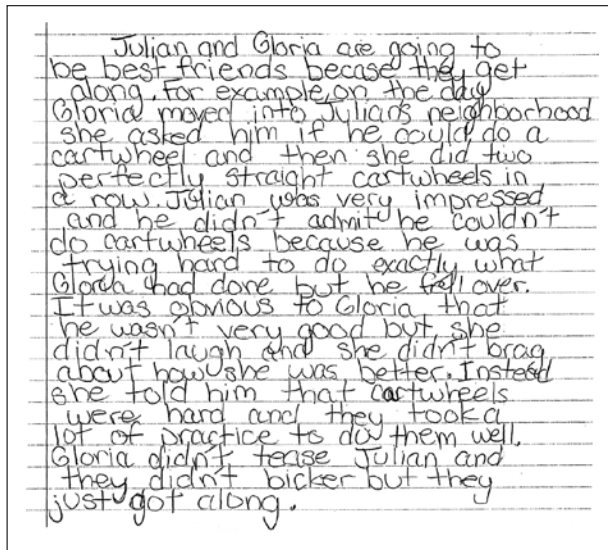 Julian and Gloria are going to
be best friends becase they get
along. For example, on the day
Gloria moved into Julian's neighborhood
she asked him if he could do a
cartwheel and then she did two
perfectly straight cartwheels in
a row. Julian was very impressed
and he didn't admit he couldn't
do cartwheels because he was
trying hard to do exactly what
Gloria had done but he fell over.
It was obvious to Gloria that
he wasn't very good but she
didn't laugh and she didn't brag
about how she was better. Instead
she told him that cartwheels
were hard and they took a
lot of practice to do them well.
Gloria didn't tease Julian and
they didn't bicker but they
just got along.